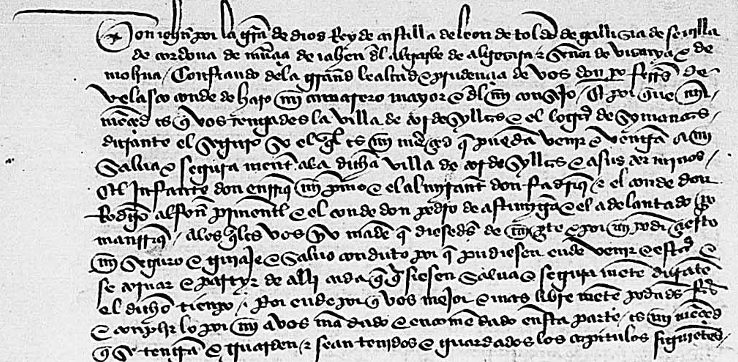 Don iohn por la gra de dios Rey de castilla de leon de toldo de gallizia de seuilla
de cordoua de murçia de iahen del algarbe de algezira e señor de vizcaya e de
molina / Confiando de la grand lealtad e prudençia de vos don po ferrs de
velasco conde de haro mi camarero mayor e del mi consejo / Et por que mi
merçed es q vos tengades la villa de oterdesyllas e el logar de symancas /
durante el seguro so el ql es mi merçed q puedan venir e vengan a mi
salua e segura mente a la dicha villa de oterdesyllas e a sus terminos /
Et l infante don enrriq mi primo e el almirant don fadriq e el conde don
Rodrigo alfon pimentl e el conde don pedro de astunyga e el adelantado po
manrriq / a los qles vos yo mande q diesedes de mi pte e por mi poder çierto
mi seguro e omenaje e saluo conduto por q pudiesen ende venir e estar e
se aiuntar e partyr de alli cada q qsiesen salua e segura mete durate
el dicho tienpo / Por ende por q vos mejor e mas libre mete podades fazer
e conplir lo por mi a vos mandado e encomedado en sta parte / es mi merçed
q se tengan e guarden e sean tenidos e guardados los capitulos siguietes /